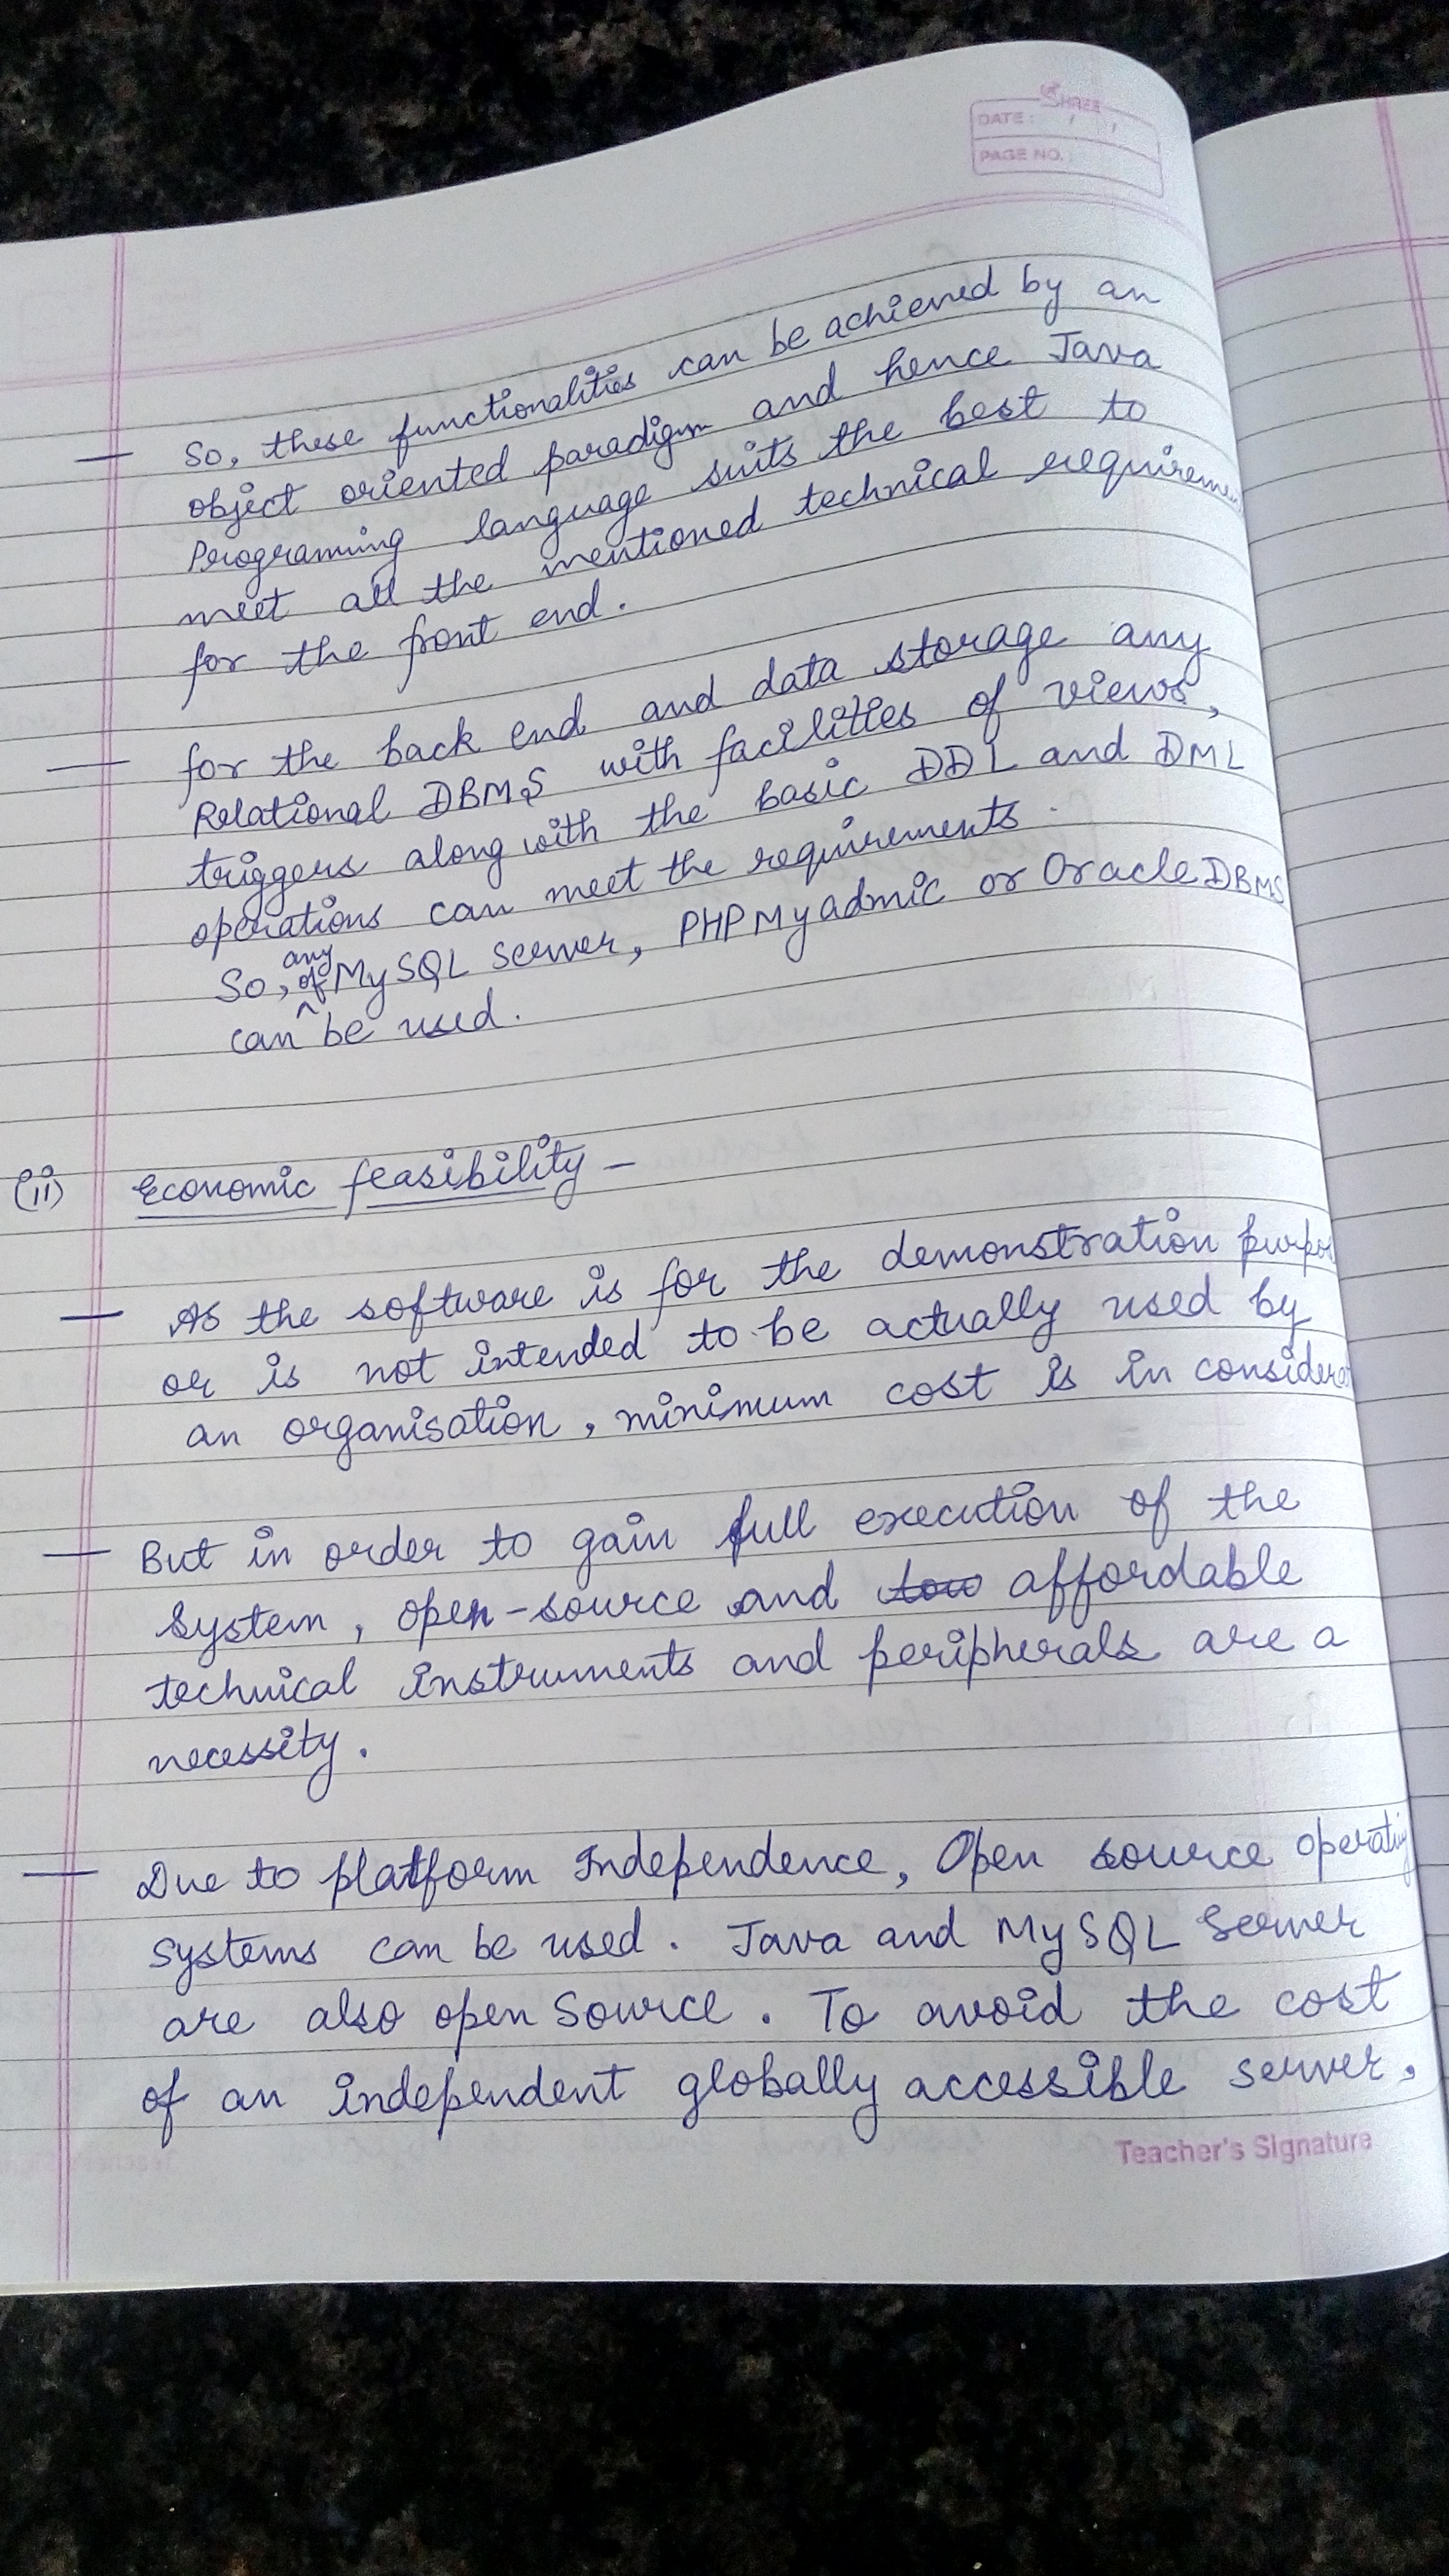 SHREE
DATE: / /
PAGE NO.
— So, these functionalities can be achieved by an
object oriented paradigm and hence Java
Programing language suits the best to
meet all the mentioned technical requiremen
for the front end.
— for the back end and data storage any
Relational DBMS with facilities of views,
triggers along with the basic DDL and DML
operations can meet the requirements.
So, any of MySQL Server, PHPMyadmic or Oracle DBMS
can be used.
(ii) Economic feasibility –
— As the software is for the demonstration purpos
or is not intended to be actually used by
an organisation, minimum cost is in considerat
— But in order to gain full execution of the
System, open-source and low affordable
technical instruments and peripherals are a
necessity.
— Due to platform Independence, Open source operating
systems can be used. Java and MySQL Server
are also open Source. To avoid the cost
of an independent globally accessible server,
Teacher's Signature